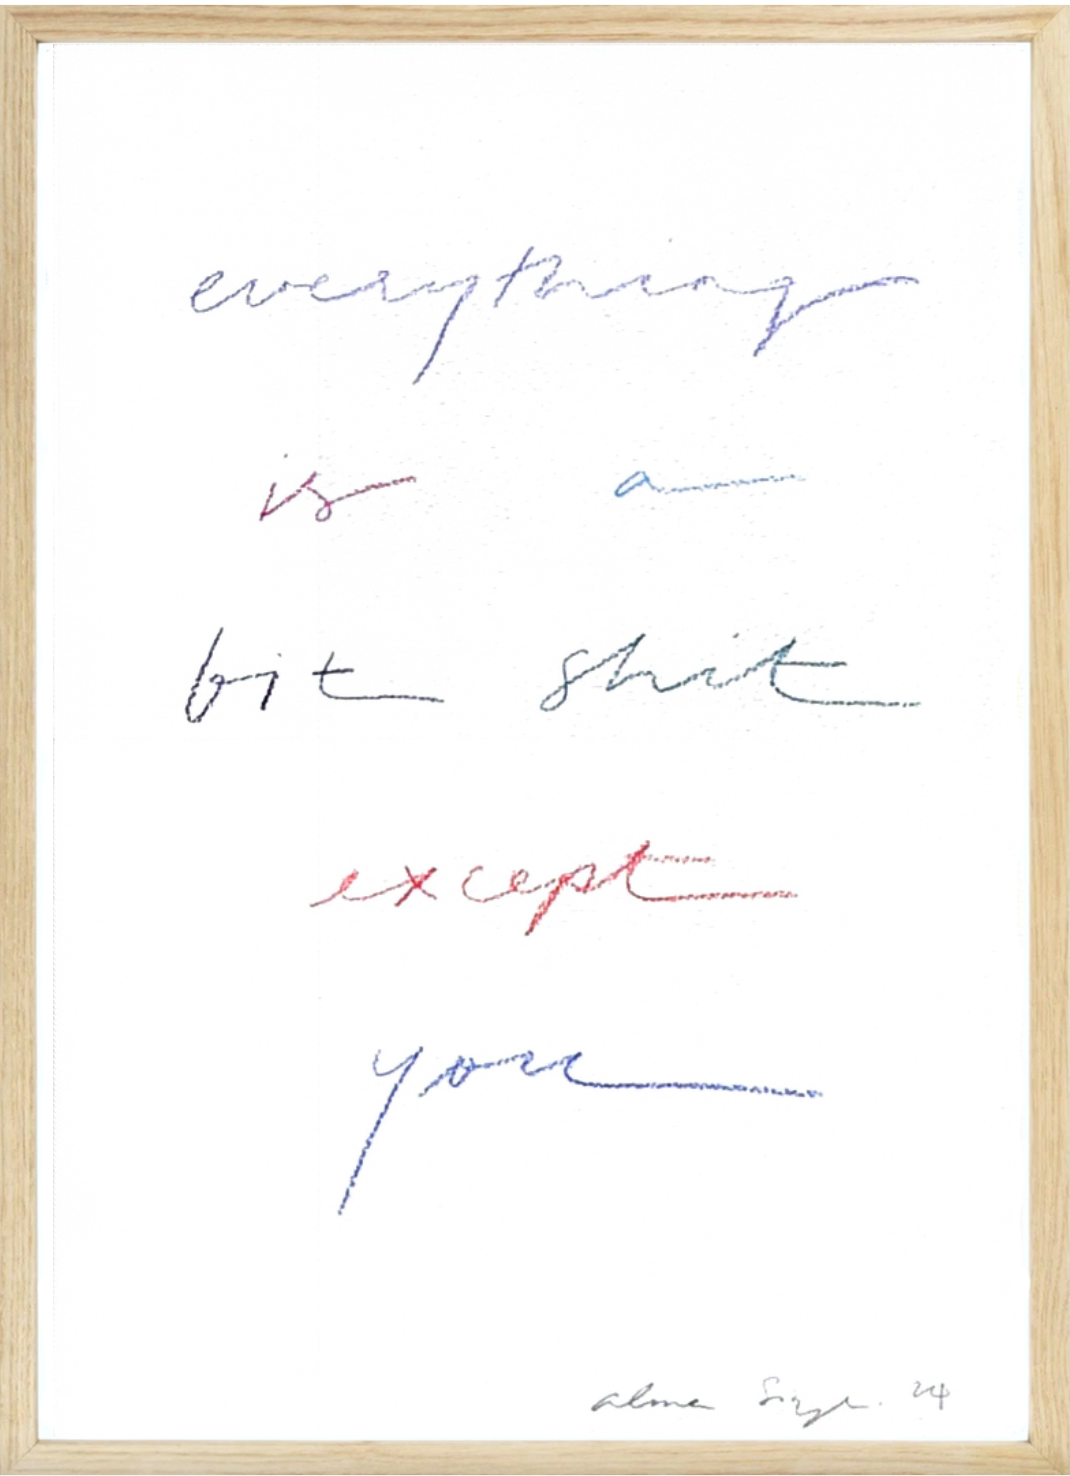 everything
is a
bit shit
except
you
alma 24